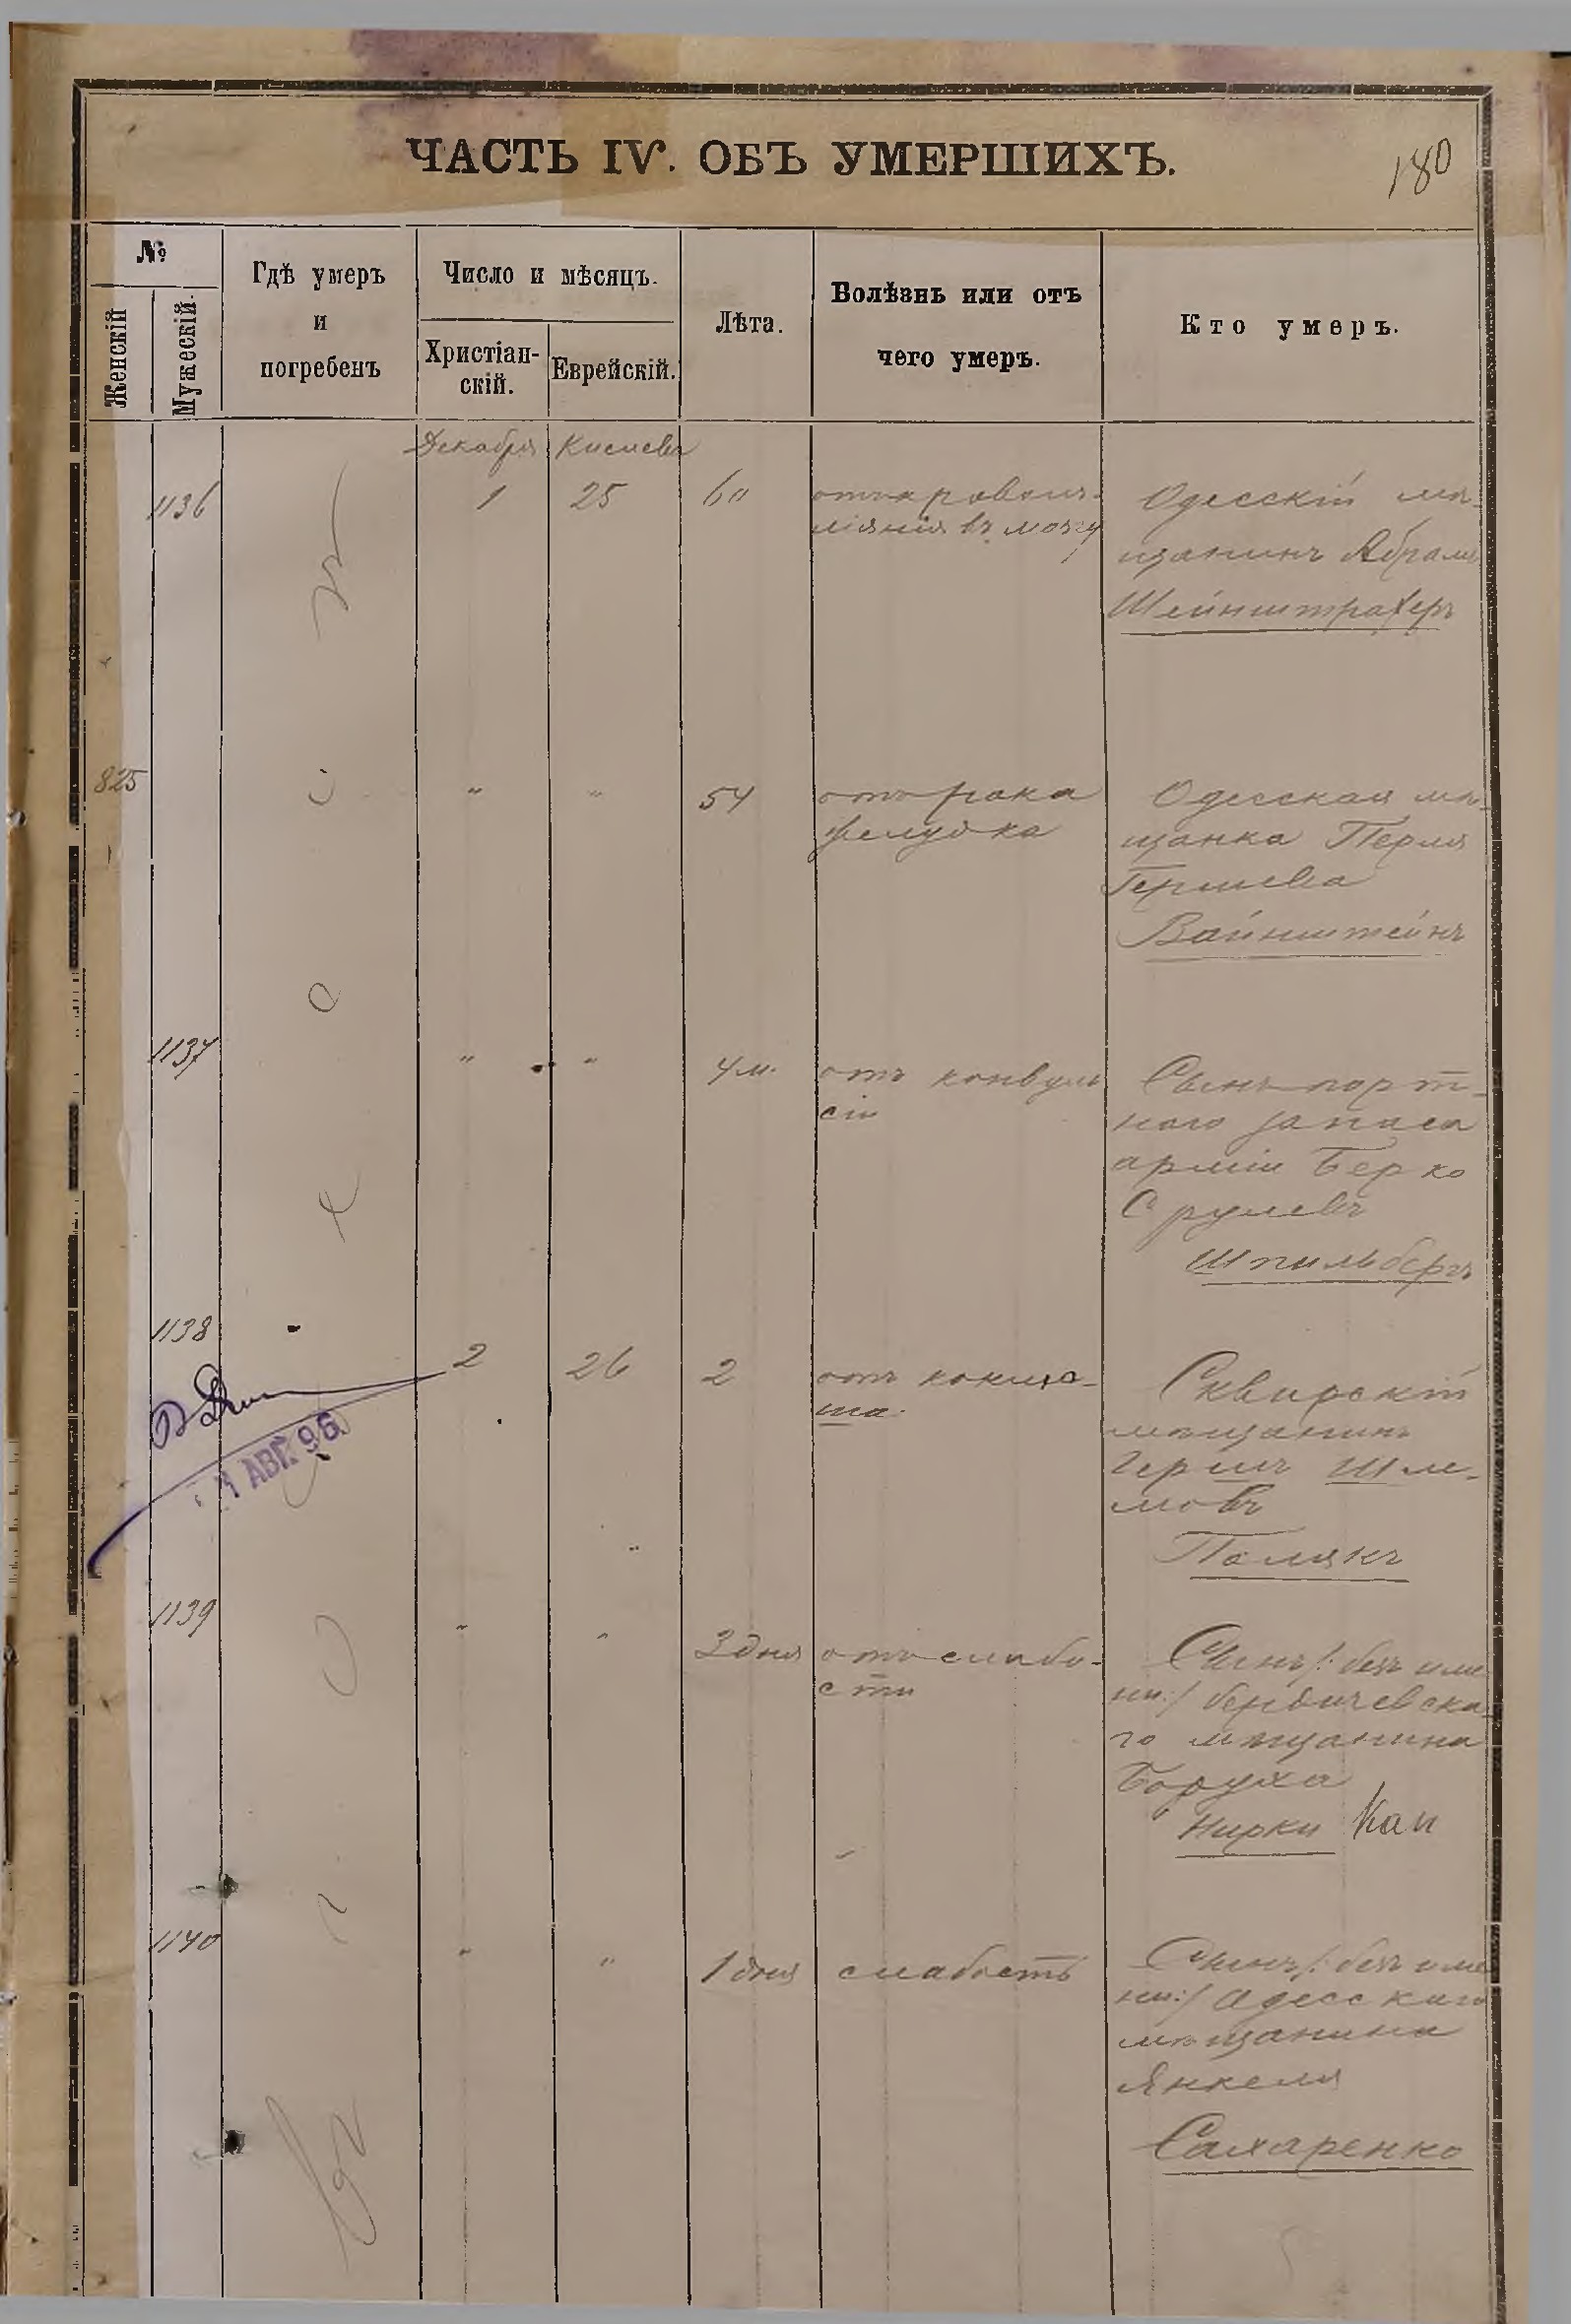 ЧАСТЬ IV. ОБЪ УМЕРШИХЪ.
180
№
Женскій
Мужескій.
Гдѣ умеръ
и
погребенъ
Число и мѣсяцъ.
Христіан-
скій.
Еврейскій.
Лѣта.
Болѣзнь или отъ
чего умеръ.
Кто умеръ.
Декабря Кислевъ
1136 1 25 60
отъ кровоиз-
ліянія въ мозгу
Одесскій мѣ-
щанинъ Абрамъ
Шейнштрахеръ
825 " " 54
отъ рака
желудка
Одесская мѣ-
щанка Перля
Гершева
Вайнштейнъ
1137 " " 4 м.
отъ конвуль
сіи
Сынъ порт-
ного запаса
арміи Берко
Срулевъ
Шпильбергъ
1138 2 26 2
отъ коклю-
ша.
Сквирскій
мѣщанинъ
Гершъ Шле-
мовъ
Полякъ
АВГ. 96
1139 " " 3 дня
отъ слабо-
сти
Сынъ /: безъ име
ни :/ бердичевска-
го мѣщанина
Боруха
Нирки
1140 " " 1 дня
слабость
Сынъ /: безъ име
ни :/ Одесскаго
мѣщанина
Янкеля
Сахаренко